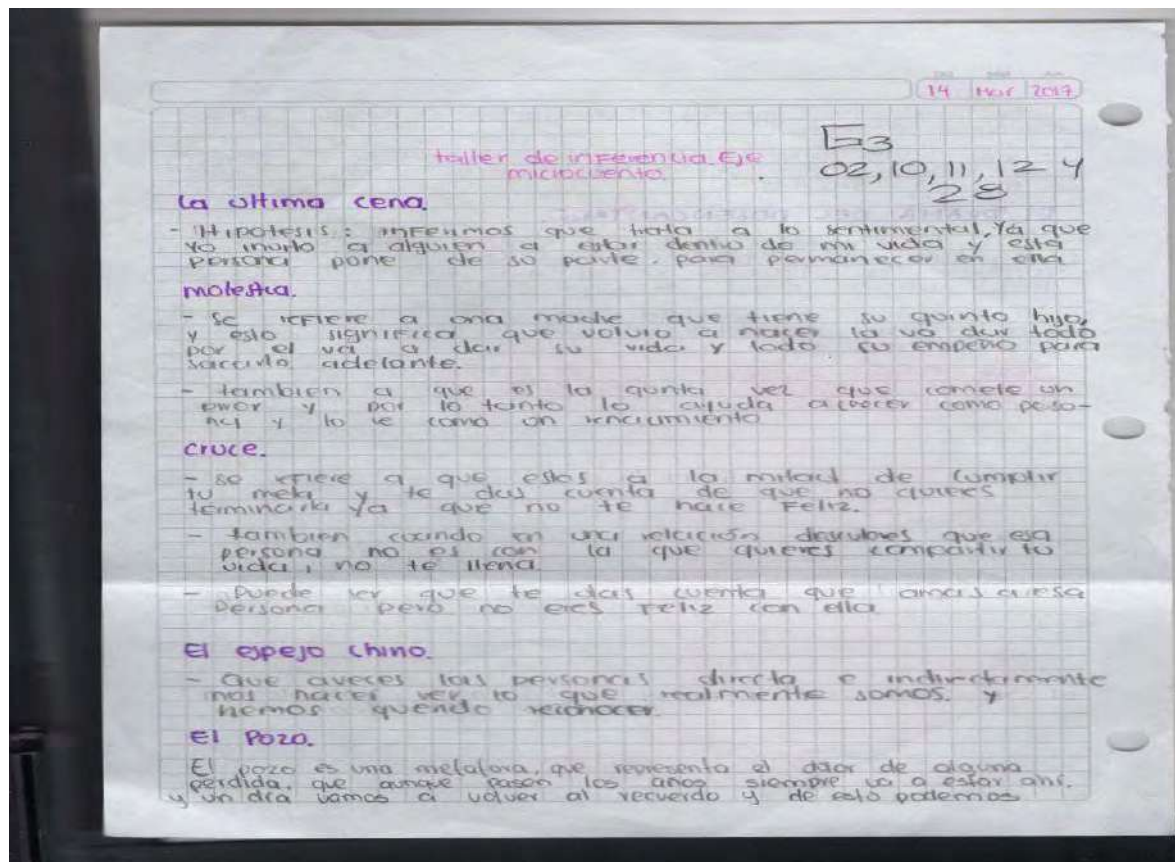 14 Mar 2017
E3
taller de inferencia Eje
02, 10, 11, 12 y
microcuento.
28
La ultima cena.
- Hipotesis: inferimos que trata a lo sentimental, Ya que
Yo invito a alguien a estar dentro de mi vida y esta
persona pone de su parte. para permanecer en ella
molestia.
- Se refiere a una madre que tiene su quinto hijo,
y esto significa que volvio a nacer la va dar todo
por el va a dar su vida y todo su empeño para
sacarlo adelante.
- tambien a que es la quinta vez que comete un
error y por lo tanto lo ayuda a crecer como perso-
na y lo ve como un renacimiento
cruce.
- se refiere a que estas a la mitad de cumplir
tu meta y te das cuenta de que no quieres
terminarla ya que no te hace Feliz.
- tambien cuando en una relación descubres que esa
persona no es con la que quieres compartir tu
vida, no te llena
- Puede ser que te das cuenta que amas a esa
Persona pero no eres Feliz con ella
El espejo chino.
- Que aveces las personas directa e indirectamente
nos hacen ver lo que realmente somos. y
hemos querido reconocer.
El Pozo.
El pozo es una metafora, que representa el dolor de alguna
perdida, que aunque pasen los años siempre va a estar ahi.
y un dia vamos a volver al recuerdo y de esto podemos